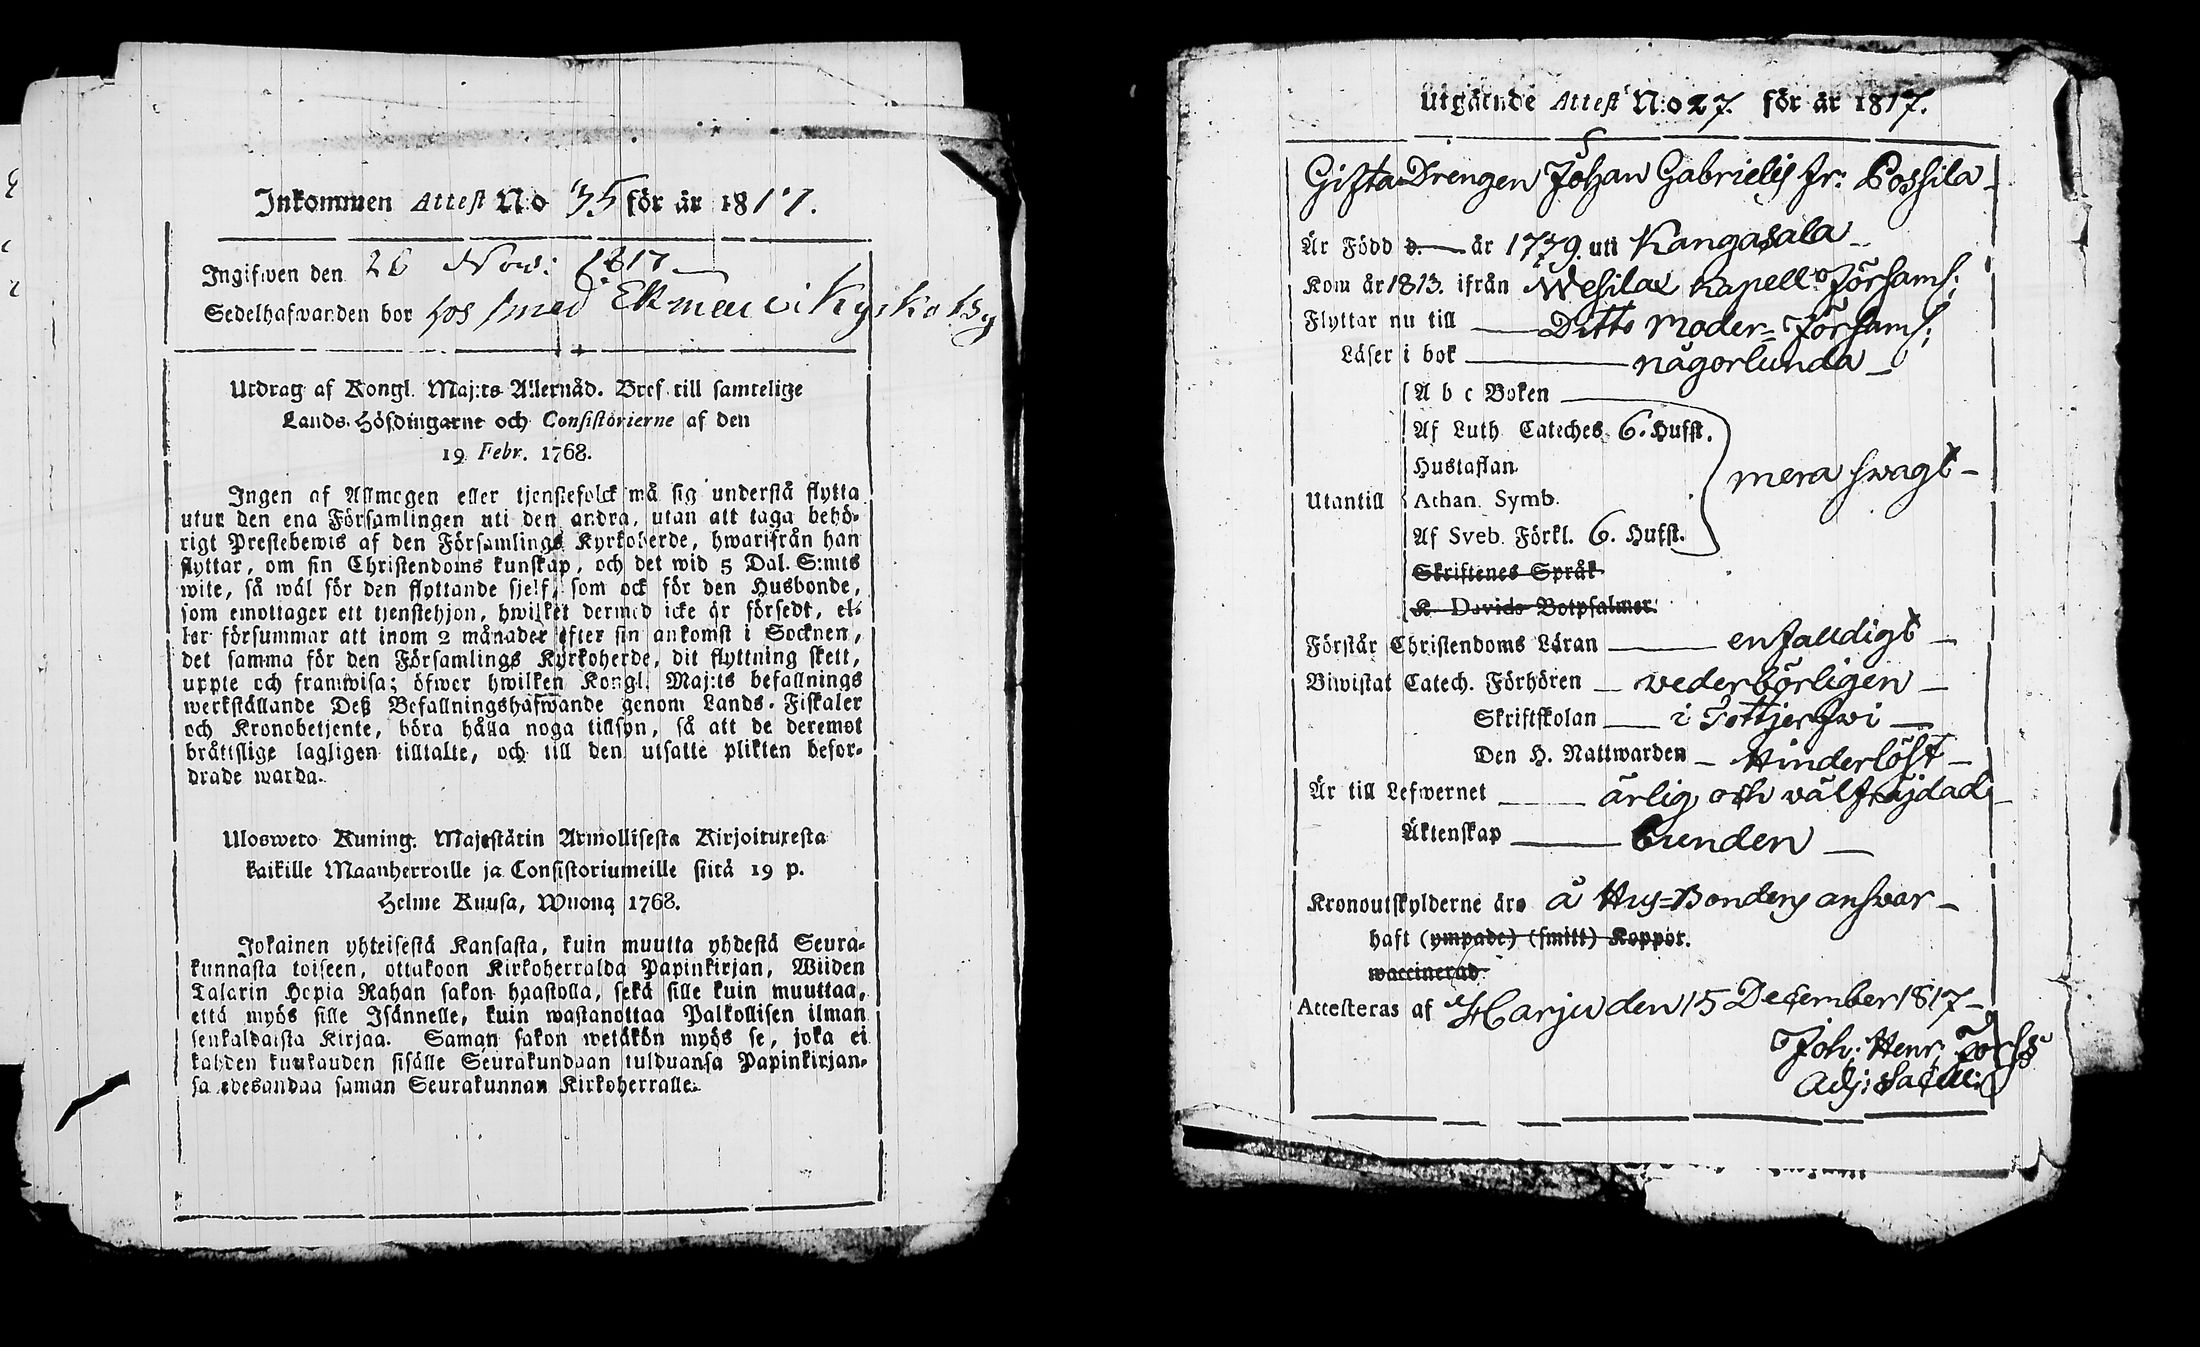 Inkommen Attest No 35 för år 1817.
Ingifwen den 26 Nov: 1817
Sedelhafwanden bor hos smed Ekman i Kyrkoby
Utdrag af Kongl. Maj:ts Allernåd. Bref till samtelige
Lands-Höfdingarne och Consistorierne af den
19 Febr. 1768.
Ingen af Allmogen eller tjenstefolck må sig understå flytta
utur den ena Församlingen uti den andra, utan att taga behö-
rigt Prestebewis af den Församlings Kyrkoherde, hwarifrån han
flyttar, om sin Christendoms kunskap, och det wid 5 Dal. S:mts
wite, så wäl för den flyttande sjelf, som ock för den Husbonde,
som emottager ett tjenstehjon, hwilket dermed icke är försedt, el-
ler försummar att inom 2 månader efter sin ankomst i Socknen,
det samma för den Församlings Kyrkoherde, dit flyttning skett,
uppte och framwisa; öfwer hwilken Kongl. Maj:ts befallnings
werkställande Deß Befallningshafwande genom Lands-Fiskaler
och Kronobetjente, böra hålla noga tillsyn, så att de deremot
bråttslige lagligen tilltalte, och till den utsatte plikten befor-
drade warda.
Ulosweto Kuning. Majestätin Armollisesta Kirjoituxesta
kaikille Maanherroille ja Consistoriumeille siitä 19 p.
Helme Kuusa, Wuona 1768.
Jokainen yhteisestä Kansasta, kuin muutta yhdestä Seura-
kunnasta toiseen, ottakoon Kirkoherralda Papinkirjan, Wiiden
Talarin Hopia Rahan sakon haastolla, sekä sille kuin muuttaa,
että myös sille Isännelle, kuin wastanottaa Palkollisen ilman
senkaldaista Kirjaa. Saman sakon wetäkön myös se, joka ei
kahden kuukauden sisälle Seurakundaan tulduansa Papinkirjan-
sa edesandaa saman Seurakunnan Kirkoherralle.
Utgående Attest N:o 27. för år 1817.
Gifta Drengen Johan Gabrielis fr: Possila
Är Född d. år 1779. uti Kangasala
Kom år 1813. ifrån Wesilax Kapell Församl:
Flyttar nu till Ditto Moder-Församl:
Läser i bok någorlunda
A b c Boken
Af Luth Cateches. 6. Hufst.
Hustaflan
mera swagt
Utantill Athan. Symb.
Af Sveb. Förkl. 6. Hufst.
Skriftenes Språk
K. Davids Botpsalmer.
Förstår Christendoms Läran enfalldigt
Biwistat Catech. Förhören vederbörligen
Skriftskolan i
Den H. Nattwarden Hinderlöst
Är till Lefwernet ärlig och välfräjdad
Äktenskap bunden
Kronoutskylderne äro å Hus-Bondens answar
haft (ympade) (smitt) Koppor.
waccinerad.
Attesteras af Harju den 15 December 1817
Joh: Henr:
Adj: Sacell: